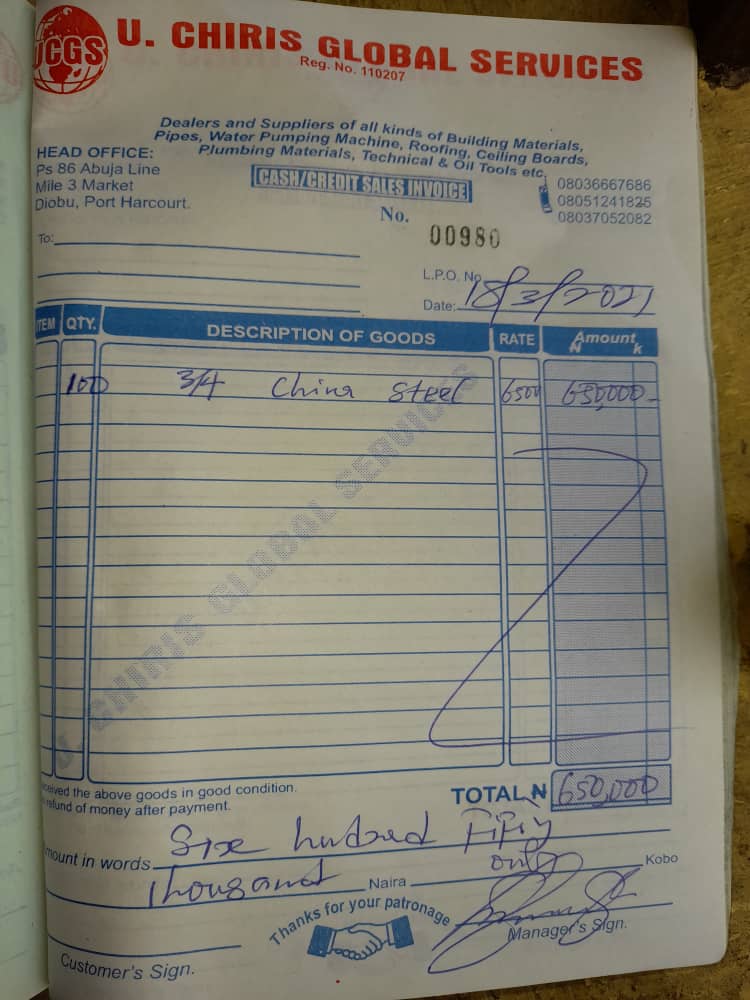 UCGS
U. CHIRIS GLOBAL SERVICES
Reg. No. 110207
Dealers and Suppliers of all kinds of Building Materials,
Pipes, Water Pumping Machine, Roofing, Ceiling Boards,
Plumbing Materials, Technical & Oil Tools etc.
HEAD OFFICE:
Ps 86 Abuja Line
Mile 3 Market
Diobu, Port Harcourt.
CASH/CREDIT SALES INVOICE
08036667686
08051241825
08037052082
No. 00980
To:
L.P.O. No
Date: 18/3/2021
ITEM QTY. DESCRIPTION OF GOODS RATE Amount
₦ k
100 3/4 China Steel 6500 650,000
U. CHIRIS GLOBAL SERVICES
received the above goods in good condition.
refund of money after payment.
TOTAL ₦ 650,000
mount in words Six hundred Fifty
Thousand Naira only Kobo
Thanks for your patronage
Manager's Sign.
Customer's Sign.